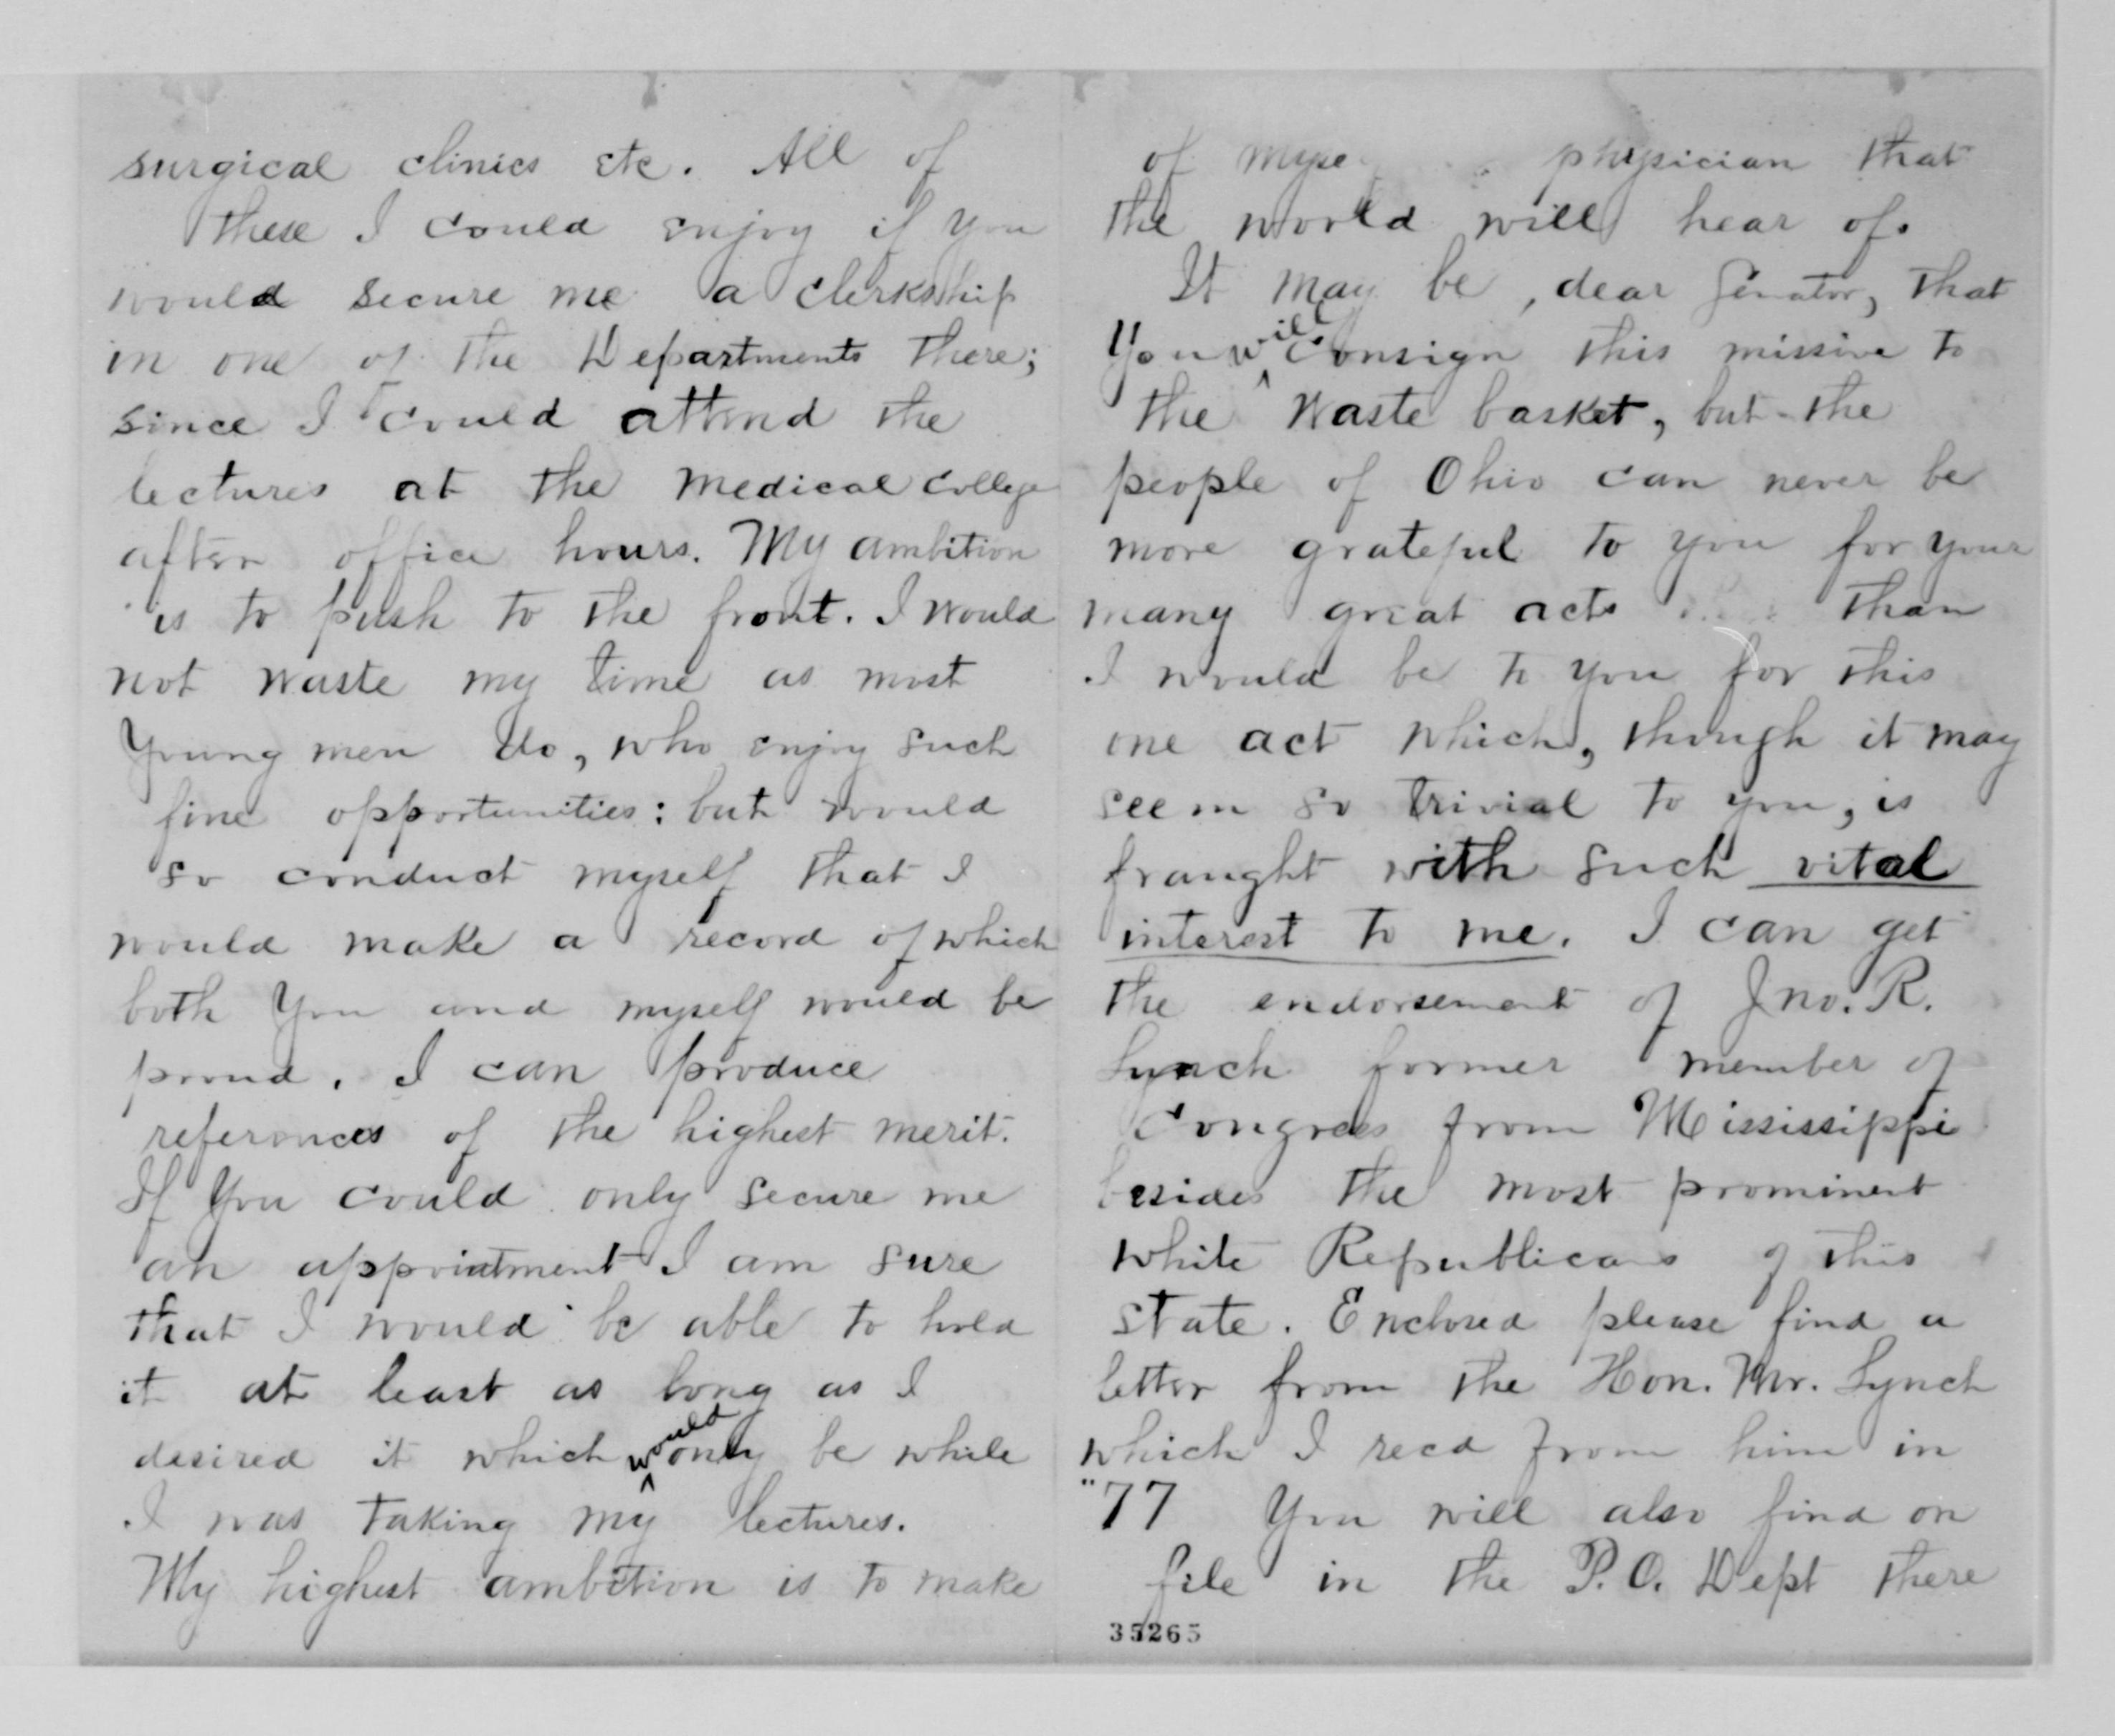 surgical clinics etc. All of
these I could enjoy if you
would secure me a clerkship
in one of the Departments there;
since I could attend the
lectures at the Medical College
after office hours. My ambition
is to push to the front. I would
not waste my time as most
Young men do, who enjoy such
fine opportunities: but would
so conduct myself that I
would make a record of which
both You and myself would be
proud. I can produce
references of the highest merit.
If You could only secure me
an appointment I am sure
that I would be able to hold
it at least as long as I
desired it which would only be while
I was taking my lectures.
My highest ambition is to make
of myse physician that
the world will hear of.
It may be, dear Senator, that
You will consign this missive to
the waste basket, but the
people of Ohio can never be
more grateful to you for your
many great acts than
I would be to you for this
one act which, though it may
seem so trivial to you, is
fraught with such vital
interest to me. I can get
the endorsement of Jno. R.
Lynch former member of
Congress from Mississippi
besides the most prominent
white Republicans of this
state. Enclosed please find a
letter from the Hon. Mr. Lynch
which I recd from him in
"77 You will also find on
file in the P.O. Dept there
35265